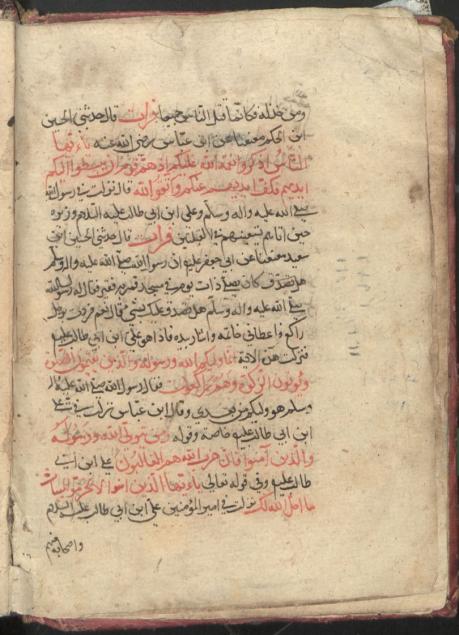 ومن خذله فكانما قتل الناس جميعا فرات قال حدثني الحسين
ابن الحكم معنعنا عن ابن عباس رضي الله عنه يا ايها
الناس اذكروا نعمة الله عليكم اذ هم قوم ان يبسطوا اليكم
ايديهم فكف ايديهم عنكم واتقوا الله قال نزلت في رسول الله
صلى الله عليه واله وسلم وعلي ابن ابي طالب عليه السلام وزيره
حين اتاهم يستعينهم في القتيلين فرات قال حدثني الحسين ابن
سعيد معنعنا عن ابي جعفر عليه ان رسول الله صلى الله عليه واله وسلم
كان يصلي ذات يوم في مسجد فمر به فقير فقال له رسول الله
صلى الله عليه واله وسلم هل تصدق عليك بشيء قال نعم مررت برجل
راكع واعطاني خاتمه واشار بيده فاذا هو علي ابن ابي طالب عليه
فنزلت هذه الاية انما وليكم الله ورسوله والذين يقيمون الصلوة
ويؤتون الزكوة وهم راكعون فقال رسول الله صلى الله عليه واله
وسلم هو وليكم من بعدي وقال ابن عباس نزلت في علي
ابن ابي طالب عليه خاصة وقوله ومن يتول الله ورسوله
والذين آمنوا فان حزب الله هم الغالبون علي ابن ابي
طالب عليه وفي قوله تعالى يا ايها الذين امنوا لا تحرموا طيبات
ما احل الله لكم نزلت في امير المؤمنين علي ابن ابي طالب عليه السلام
واصحابه منهم